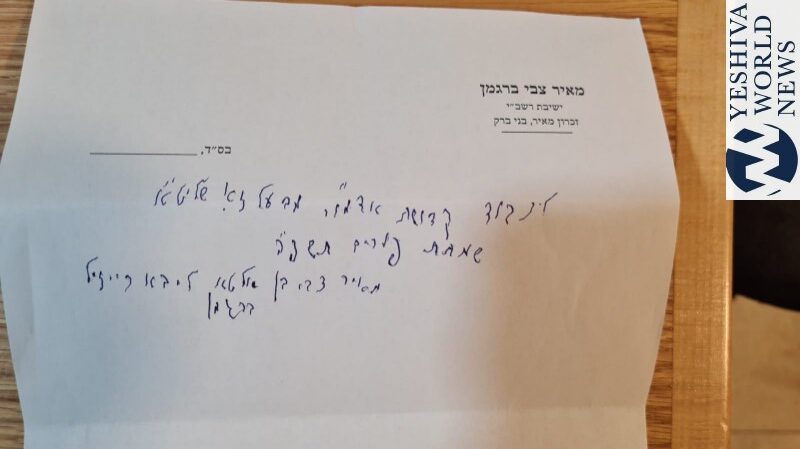 YESHIVA
WORLD
NEWS
מאיר צבי ברגמן
ישיבת רשב״י
זכרון מאיר, בני ברק
בס״ד,
לכבוד קדושת אדמו״ר מבעלזא שליט״א
שמחת פורים
מאיר צבי בן אלטא ליבא רייזיל
ברגמן